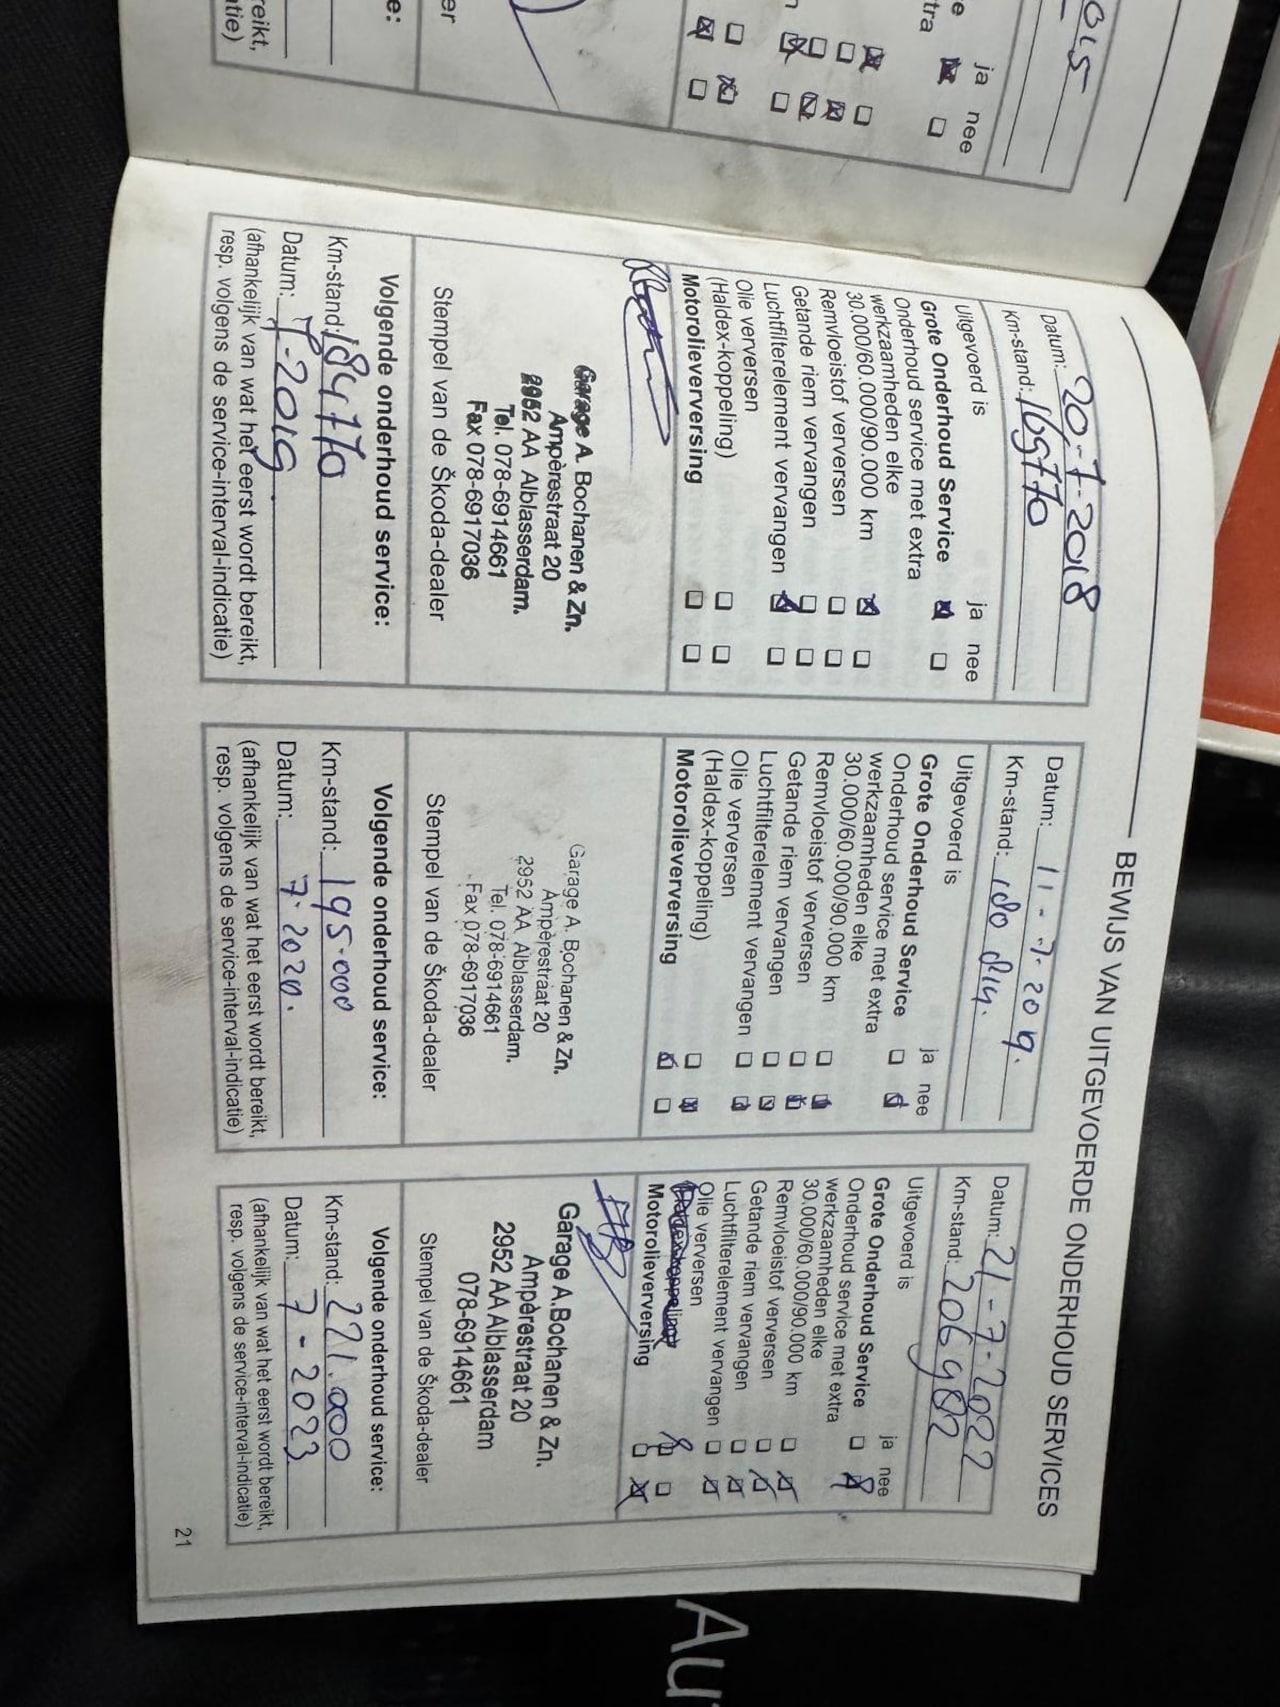 015
ja nee
BEWIJS VAN UITGEVOERDE ONDERHOUD SERVICES
Datum: 20-7-2018
Km-stand: 169770
Uitgevoerd is
ja nee
Grote Onderhoud Service
Onderhoud service met extra
werkzaamheden elke
30.000/60.000/90.000 km
Remvloeistof verversen
Getande riem vervangen
Luchtfilterelement vervangen
Olie verversen
(Haldex-koppeling)
Motorolieverversing
Garage A. Bochanen & Zn.
Ampèrestraat 20
2952 AA Alblasserdam.
Tel. 078-6914661
Fax 078-6917036
Stempel van de Škoda-dealer
Volgende onderhoud service:
Km-stand: 184770
Datum: 7-2019
(afhankelijk van wat het eerst wordt bereikt,
resp. volgens de service-interval-indicatie)
Datum: 11-7-2019.
Km-stand: 180
Uitgevoerd is
ja nee
Grote Onderhoud Service
Onderhoud service met extra
werkzaamheden elke
30.000/60.000/90.000 km
Remvloeistof verversen
Getande riem vervangen
Luchtfilterelement vervangen
Olie verversen
(Haldex-koppeling)
Motorolieverversing
Garage A. Bochanen & Zn.
Ampèrestraat 20
2952 AA Alblasserdam.
Tel. 078-6914661
Fax 078-6917036
Stempel van de Škoda-dealer
Volgende onderhoud service:
Km-stand: 195.000
Datum: 7-2020.
(afhankelijk van wat het eerst wordt bereikt,
resp. volgens de service-interval-indicatie)
Datum: 21-7-2022
Km-stand: 206982
Uitgevoerd is
ja nee
Grote Onderhoud Service
Onderhoud service met extra
werkzaamheden elke
30.000/60.000/90.000 km
Remvloeistof verversen
Getande riem vervangen
Luchtfilterelement vervangen
Olie verversen
(Haldex-koppeling)
Motorolieverversing
Garage A.Bochanen & Zn.
Ampèrestraat 20
2952 AA Alblasserdam
078-6914661
Stempel van de Škoda-dealer
Volgende onderhoud service:
Km-stand: 221.000
Datum: 7-2023
(afhankelijk van wat het eerst wordt bereikt,
resp. volgens de service-interval-indicatie)
21